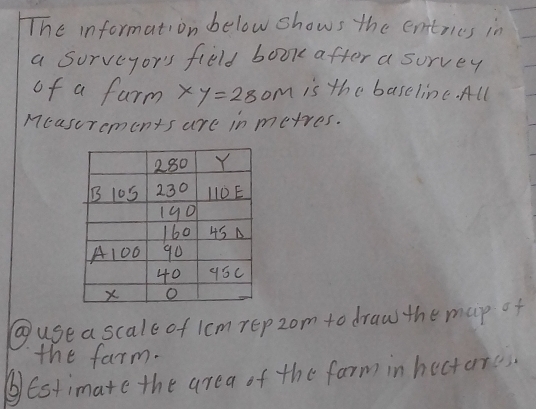 The information below shows the entries in
a surveyor's field book after a survey
of a farm XY=280m is the baseline. All
Measurements are in metres.
280 Y
B 105 230 110 E
190
160 45 D
A 100 90
40 45 C
X 0
(a) use a scale of 1cm rep 20m to draw the map of
the farm.
(b) Estimate the area of the farm in hectares.